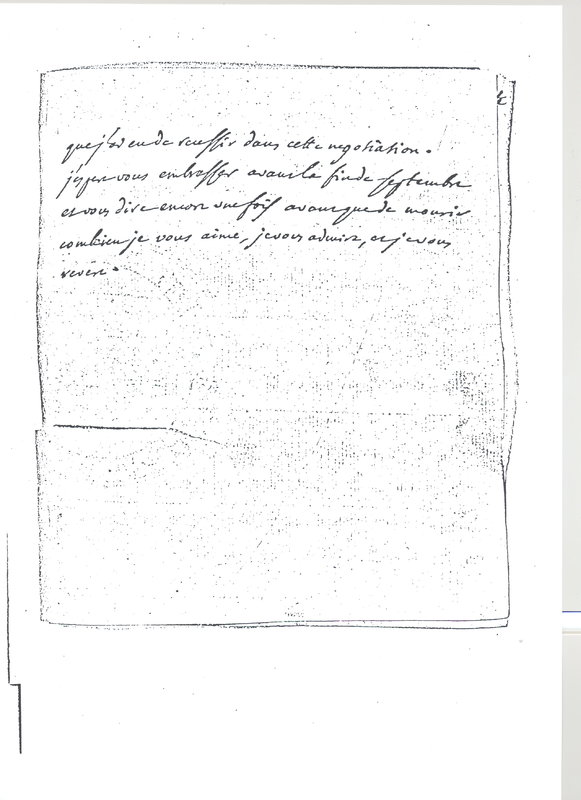 que j'ay eu de reussir dans cette negotiation.
j'espere vous embrasser avant la fin de septembre
et vous dire encore une fois avant que de mourir
combien je vous aime, je vous admire, et je vous
revere.